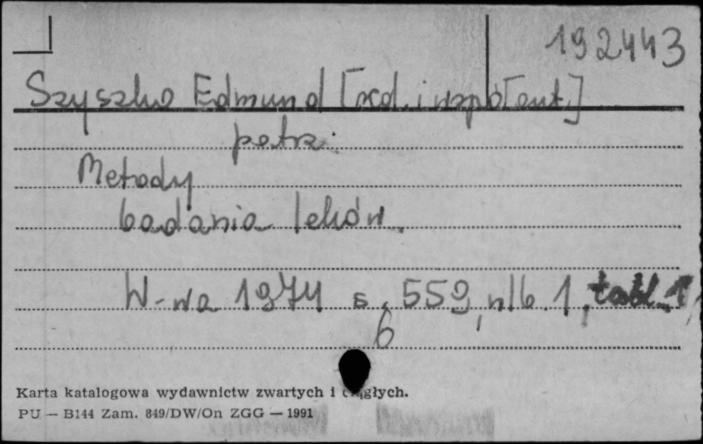 192443
Szyszko Edmund [red. i współaut.]
patrz:
Metody
badania leków.
W-wa 1974 s. 559, nlb. 1, tabl. 1
6
Karta katalogowa wydawnictw zwartych i ciągłych.
PU — B144 Zam. 849/DW/On ZGG — 1991